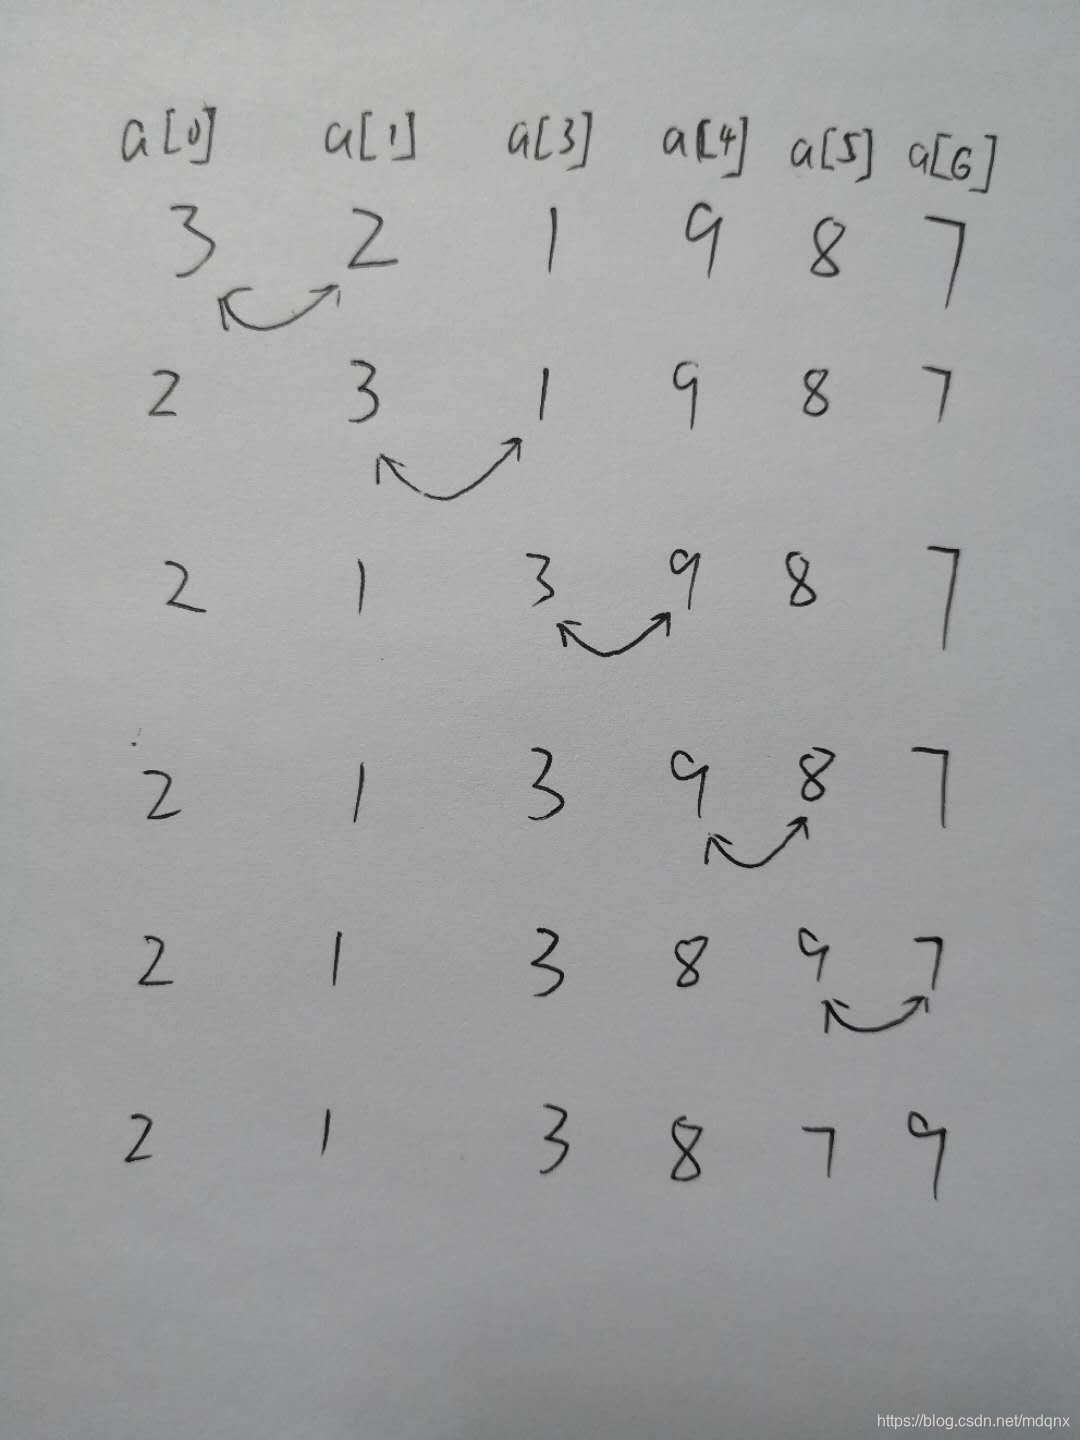 a[0] a[1] a[3] a[4] a[5] a[6]
3 2 1 9 8 7
2 3 1 9 8 7
2 1 3 9 8 7
2 1 3 9 8 7
2 1 3 8 9 7
2 1 3 8 7 9
https://blog.csdn.net/mdqnx